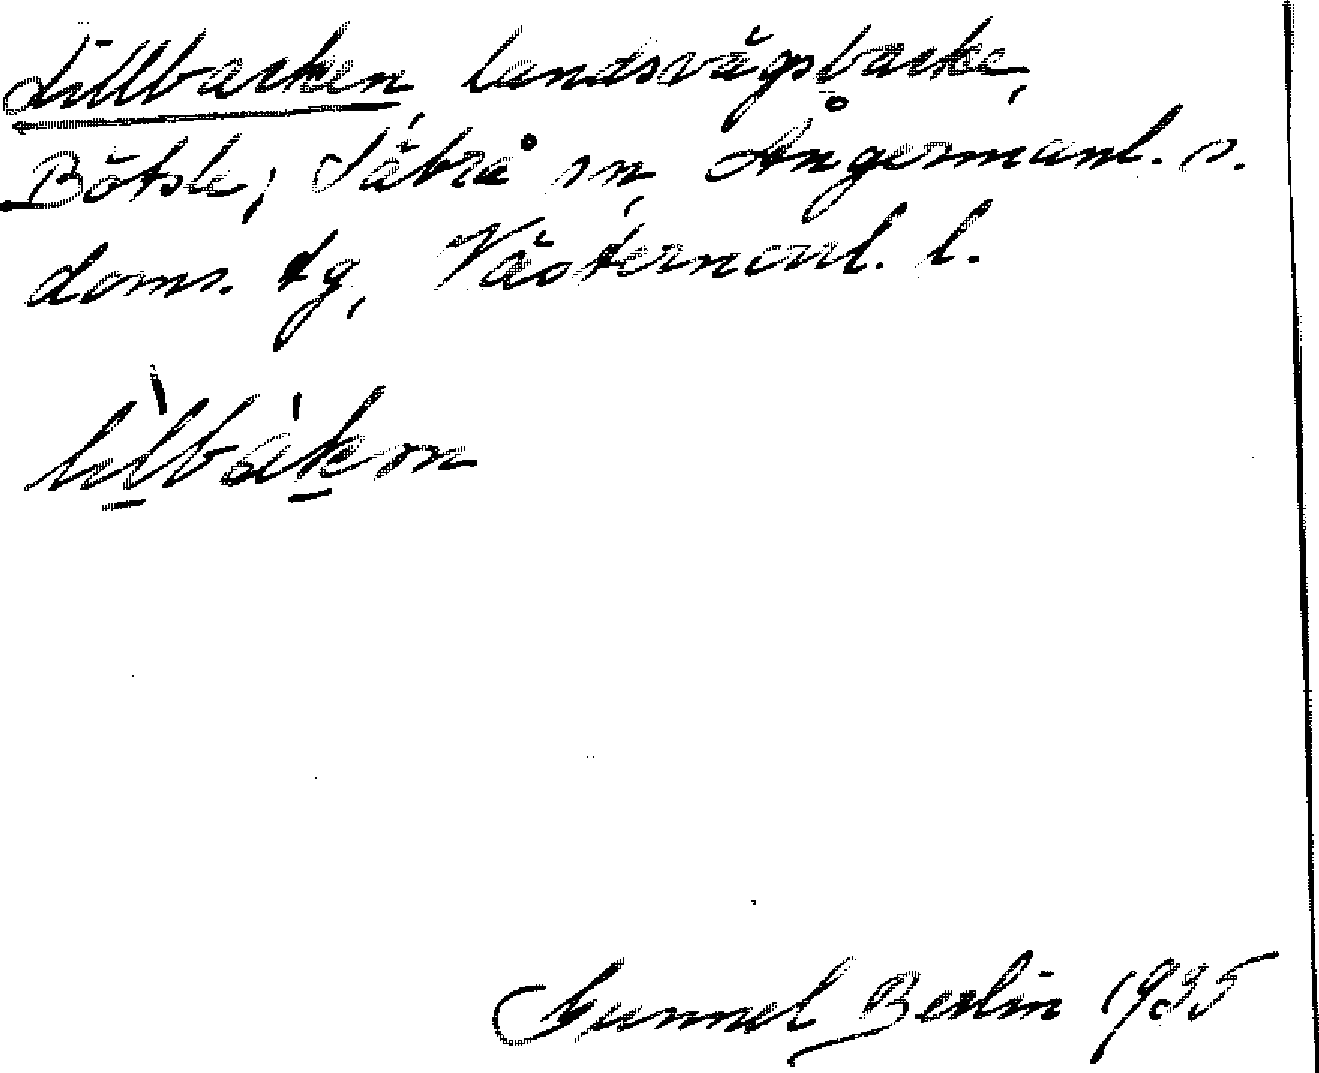 Lillbacken, landsvägsbacke,
Bötsle, Säbrå sn, Ångermanl. s.
doms. tg, Västernorrl. l.
lìlbákon
Gunnel Berlin 1935